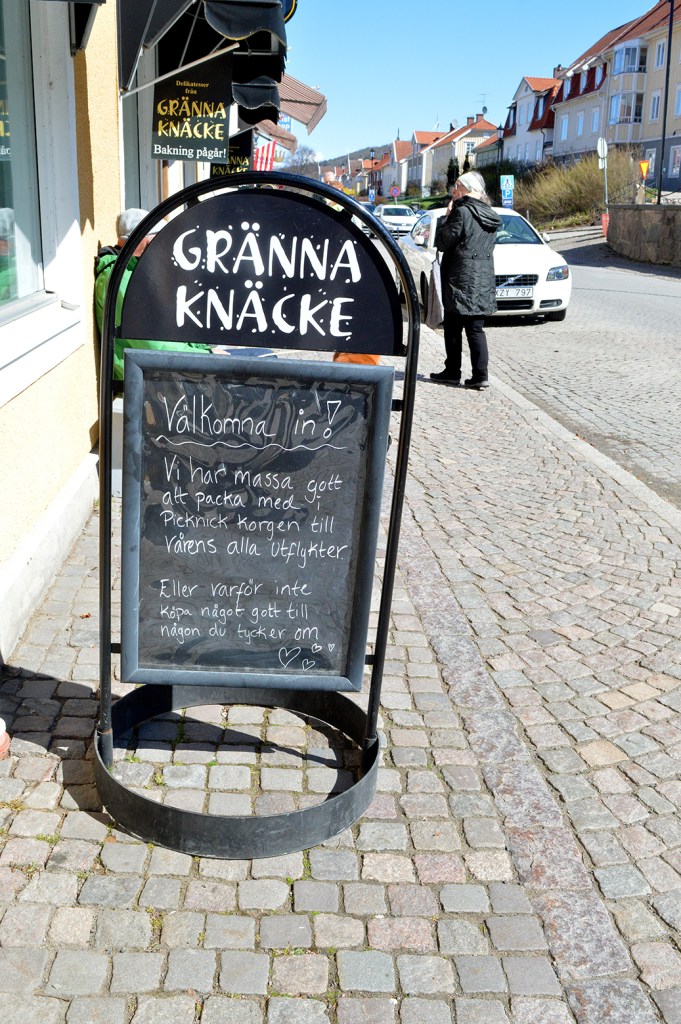 Delikatesser
från
GRÄNNA
KNÄCKE
Bakning pågår!
GRÄNNA
KNÄCKE
Välkomna in!
Vi har massa gott
att packa med i
Picknick korgen till
vårens alla utflykter
Eller varför inte
köpa något gott till
någon du tycker om